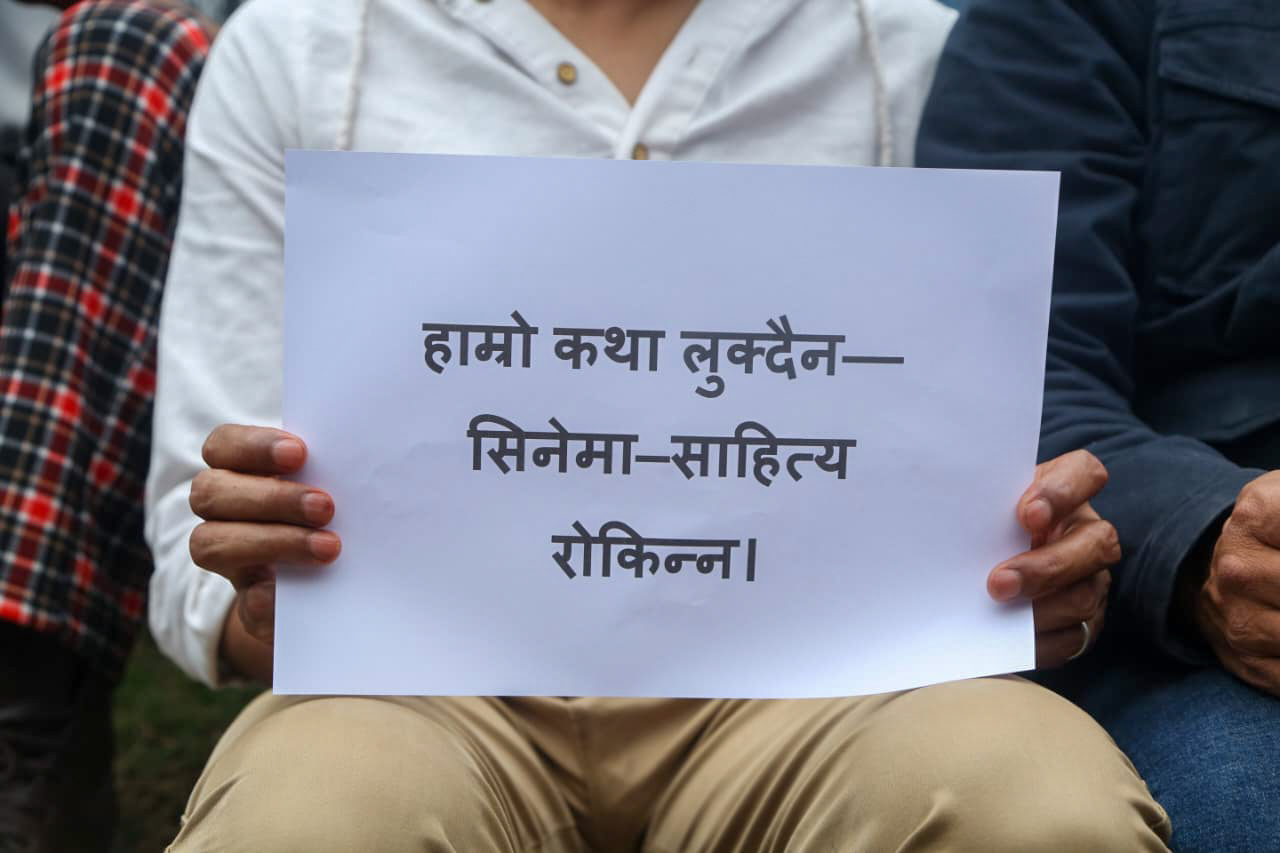 हाम्रो कथा लुक्दैन—
सिनेमा–साहित्य
रोकिन्न।